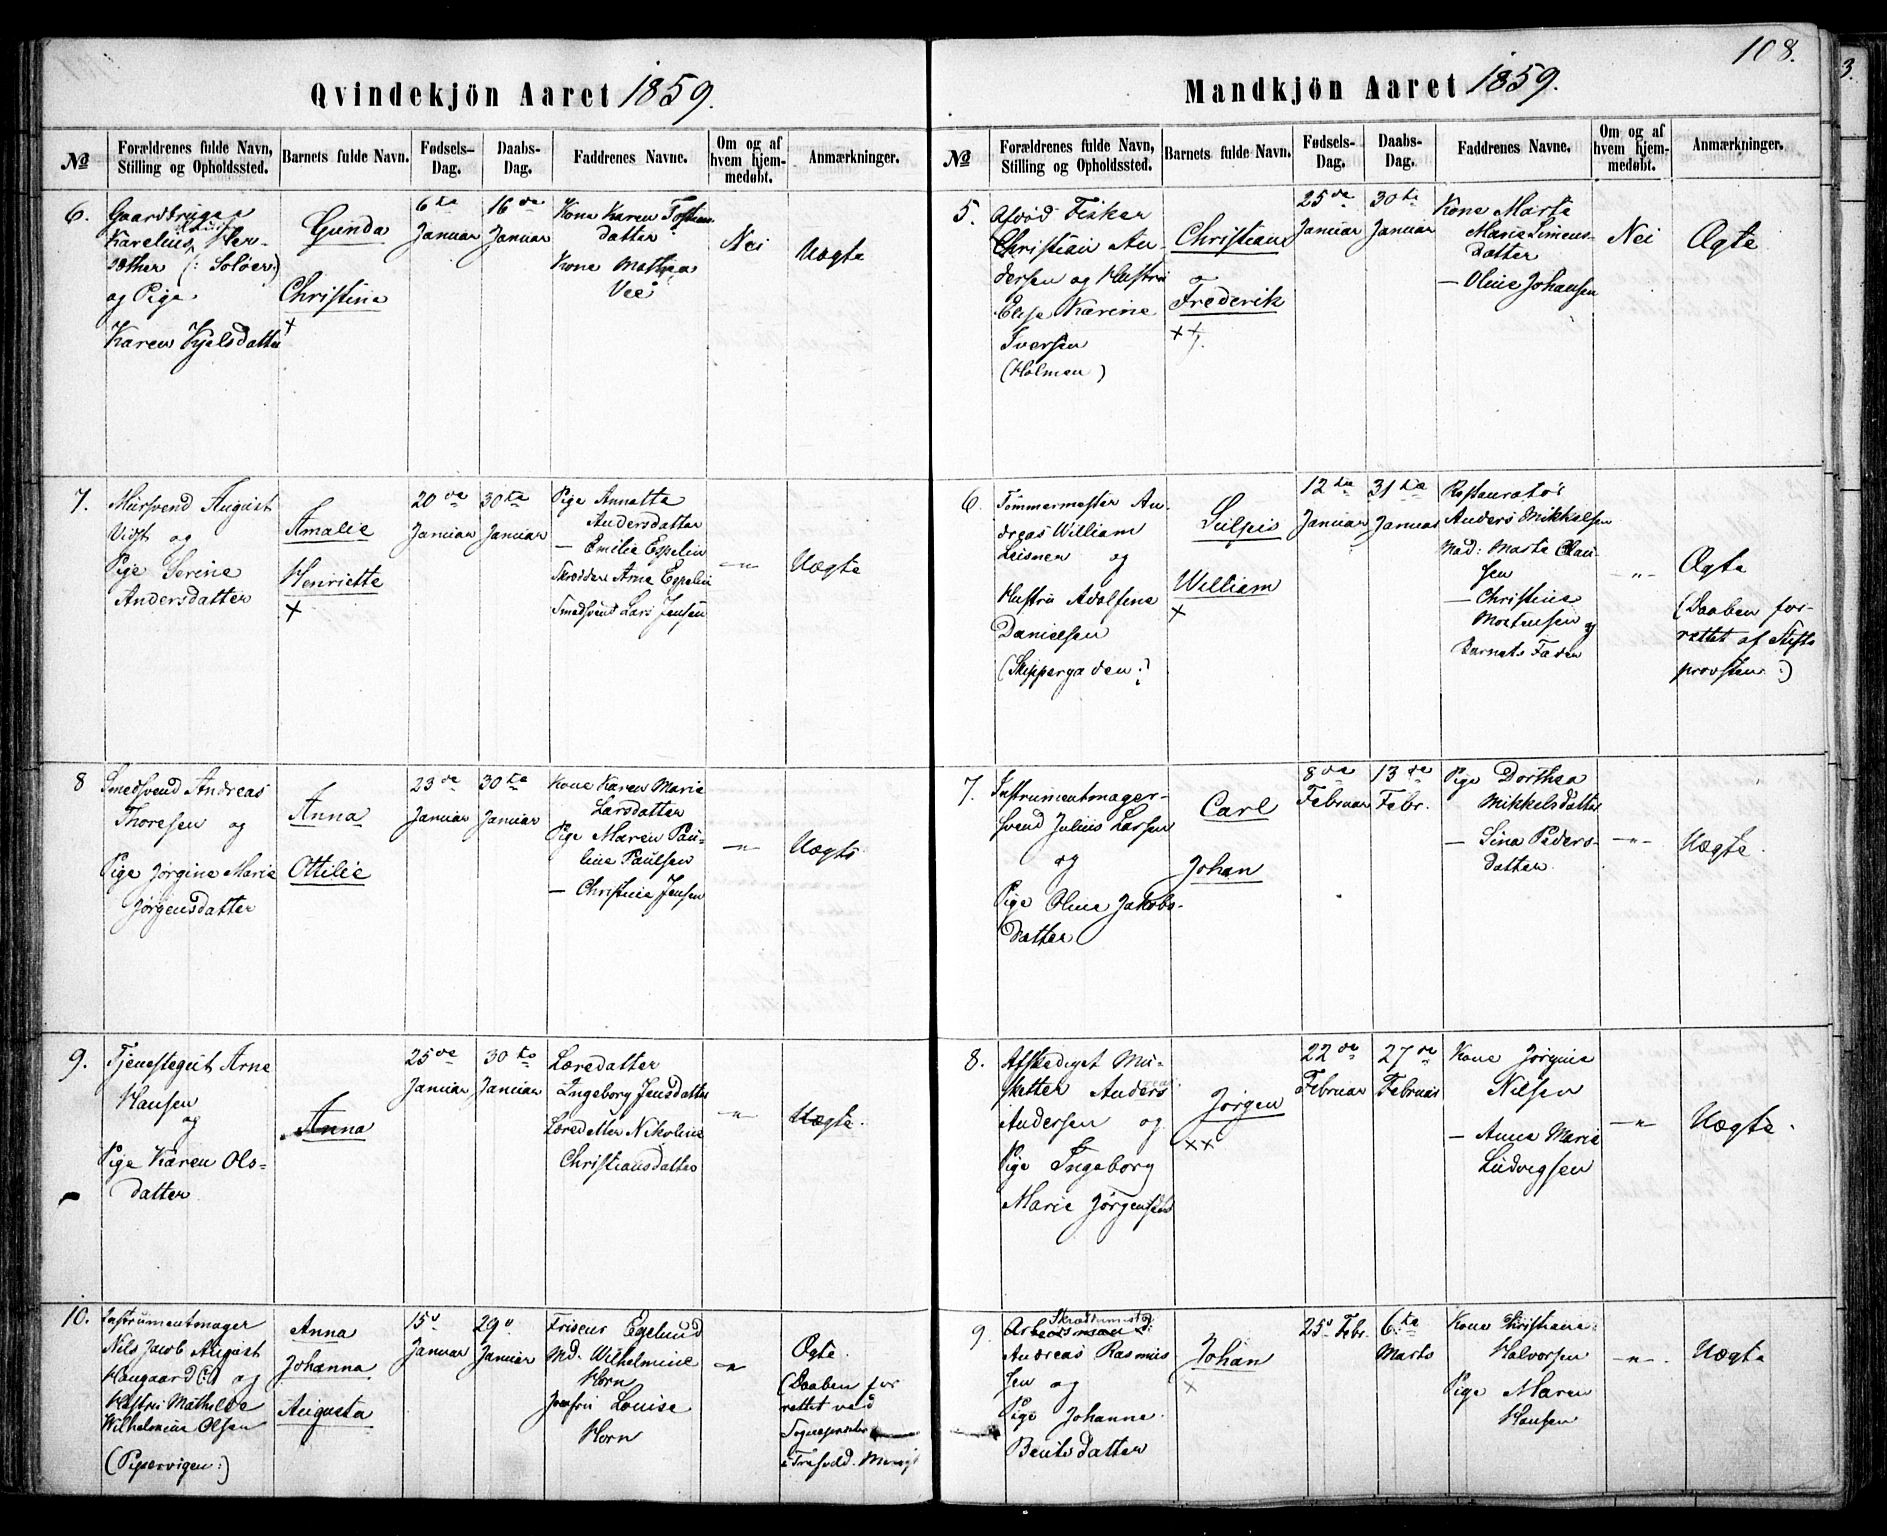 108.
Qvindekjön Aaret 1859.
№
Forældrenes fulde Navn, Stilling og Opholdssted.
Barnets fulde Navn.
Fødsels-Dag.
Daabs-Dag.
Faddrenes Navne.
Om og af hvem hjemmedøbt.
Anmærkninger.
6.
Gaardbruger
Karelius
(: Soløer:)
og Pige
Karen Kjelsdatter
Gunda
Christine
×
6te
Januar
16de
Januar
Kone Karen
datter
Kone Mathea
Vee
Nei
Uægte
7.
Mursvend August
Vidst og
Pige Serine
Andersdatter
Amalie
Henriette
×
20de
Januar
30te
Januar
Pige Annette
Andersdatter
— Emilie Espelin
Skrædder Arne Espelin
Smedsvend Lars Jensen
—"—
Uægte
8
Smedsvend Andreas
Thoresen og
Pige Jørgine Marie
Jørgensdatter
Anna
Ottilie
23de
Januar
30te
Januar
Kone Karen Marie
Larsdatter
Pige Maren Pau-
line Paulsen
— Christine Jensen
—"—
Uægte
9.
Tjenestegut Arne
Hansen
og
Pige Karen Ols-
datter
Anna
25de
Januar
30te
Januar
Læredatter
Ingeborg Jensdatter
Læredatter Nikoline
Christiansdatter
—"—
Uægte.
10.
Instrumentmager
Nils Jacob August
Haugaard og
Hustru Mathilde
Wilhelmine Olsen
(Pipervigen:)
Anna
Johanna
Augusta
15de
Januar
29de
Januar
Friseur Egelund
Md. Wilhelmine
Horn
Jomfru Louise
Horn
—"—
Ægte.
(Daaben for
rettet ved
Sognepresten
i Trefold. Menigh
Mandkjön Aaret 1859.
№
Forældrenes fulde Navn, Stilling og Opholdssted.
Barnets fulde Navn.
Fødsels-Dag.
Daabs-Dag.
Faddrenes Navne.
Om og af hvem hjemmedøbt.
Anmærkninger.
5.
Fisker
Christian An-
dersen og Hustru
Elise Karine
Iversen
(Holmen)
Christian
Frederik
××
25de
Januar
30te
Januar
Kone Marte
Marie Simens-
datter
— Oline Johansen
Nei
Ægte
6.
Tømmermester An-
dreas William
Leisner og
Hustru Adolfine
Danielsen
(Skippergaden:)
Sulpis
William
×
12te
Januar
31te
Januar
Restauratør
Anders Mikkelsen
Mad: Marte Clau-
sen
— Christine
Mortensen og
Barnets Fader
—"—
Ægte
(Daaben for-
rettet af Stifts
provsten:)
7.
Instrumentmager-
svend Julius Larsen
og
Pige Oline Jakobs-
datter
Carl
Johan
8de
Februar
13de
Febr.
Pige Dorthea
Mikkelsdatter
— Sina Peders-
datter
—"—
Uægte.
8.
Afskediget Mu-
sketter Anders
Andersen og
Pige Ingeborg
Marie Jørgensen
Jørgen
××
22de
Februar
27de
Februar
Kone Jørgine
Nilsen
— Anne Marie
Ludvigsen
—"—
Uægte.
9.
Arbeidsmand
Andreas Rasmus
sen og
Pige Johanne
Bentsdatter
Johan
×
25de Febr.
6te
Marts
Kone Christiane
Halvorsen
Pige Maren
Hansen
—"—
Uægte
3.